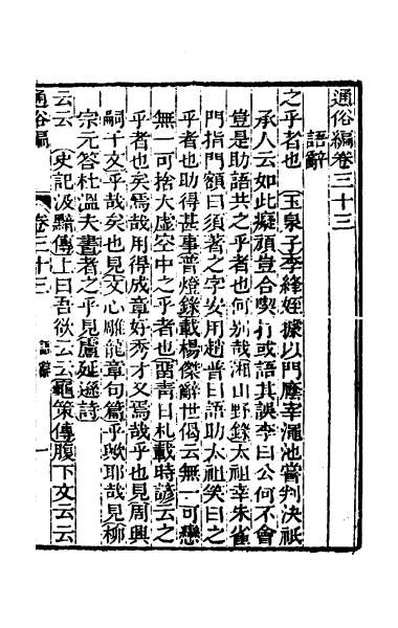 通俗編卷三十三
語辭
之乎者也〔玉泉子〕李絳姪據以門廕宰澠池嘗判決祇
承人云如此癡頑豈合喫杖或語其誤李曰公何不會
豈是助語共之乎者也何别哉〔湘山野錄〕太祖幸朱雀
門指門額曰須著之字安用趙普曰語助太祖笑曰之
乎者也助得甚事〔普燈錄〕載楊傑辭世偈云無一可戀
無一可捨大虛空中之乎者也〔留青日札〕載時諺云之
乎者也矣焉哉用得成章好秀才又焉哉乎也見周興
嗣千文乎哉矣也見文心雕龍章句篇乎歟耶哉見柳
宗元答杜溫夫書者之乎見〔盧延遜詩〕
云云〔史記汲黯傳〕上曰吾欲云云〔龜策傳〕腹下文云云
通俗編 卷三十三 語辭 一